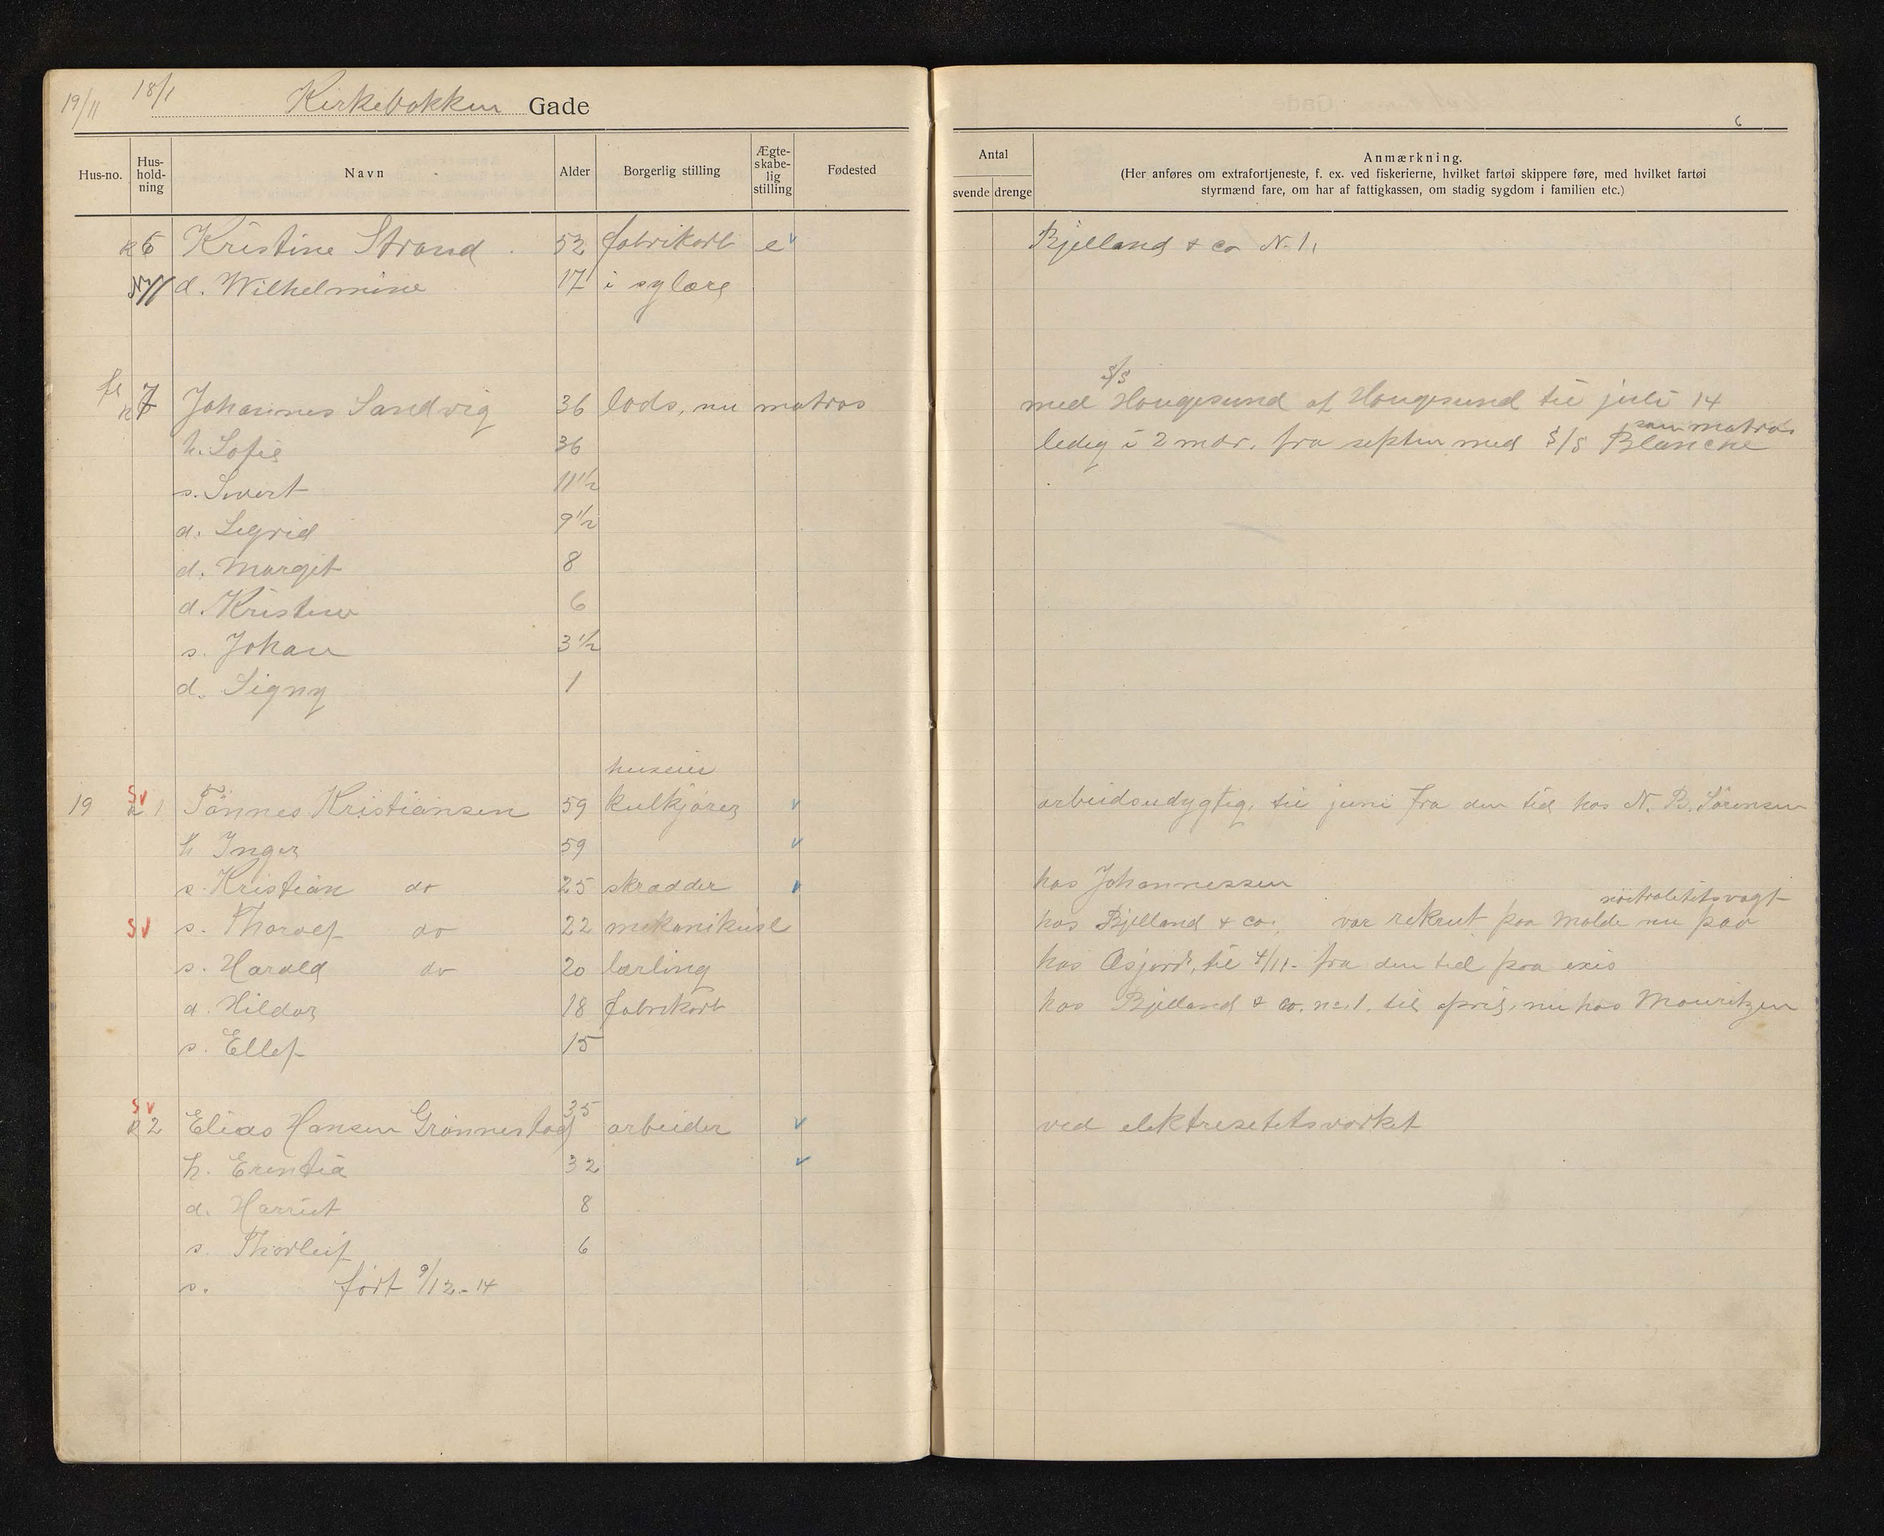 19/11 18/1 Kirkebakken Gade
6
Hus-no. Hus-hold-ning Navn Alder Borgerlig stilling Ægte-skabe-lig stilling Fødested
Antal
svende drenge
Anmærkning.
(Her anføres om extrafortjeneste, f. ex. ved fiskerierne, hvilket fartøi skippere føre, med hvilket fartøi
styrmænd fare, om har af fattigkassen, om stadig sygdom i familien etc.)
6 Kristine Strand 52 fabrikarb e Bjelland & co N. 1.
d. Wilhelmine 17 i sylære
7 Johannes Sandvig 36 lods, nu matros med S/S Haugesund af Haugesund til juli 14
h. Sofie 36 ledig i 2 mdr. fra septbr med S/S Blanche som matros
s. Sivert 11 1/2
d. Sigrid 9 1/2
d. Margit 8
d. Kristine 6
s. Johan 3 1/2
d. Signy 1
huseier
19 sv 1 Tønnes Kristiansen 59 kulkjører arbeidsudygtig, til juni fra den tid hos N. B. Sørensen
h Inger 59
s. Kristian do 25 skrædder hos Johannessen
sv s. Tharald do 22 mekanikusl hos Bjelland & co., var rekrut paa Molde nu paa nøitralitetsvagt
s. Harald do 20 lærling hos Asjord, til 4/11- fra den tid paa exis
d. Hildar 18 fabrikarb hos Bjelland & co. no. 1. til april, nu hos Mouritzen
s. Ellef 15
sv 2 Elias Hansen Grønnestad 35 arbeider ved elektrisetetsværket
h. Erentia 32
d. Harriet 8
s. Thorleif 6
s. født 9/12-14